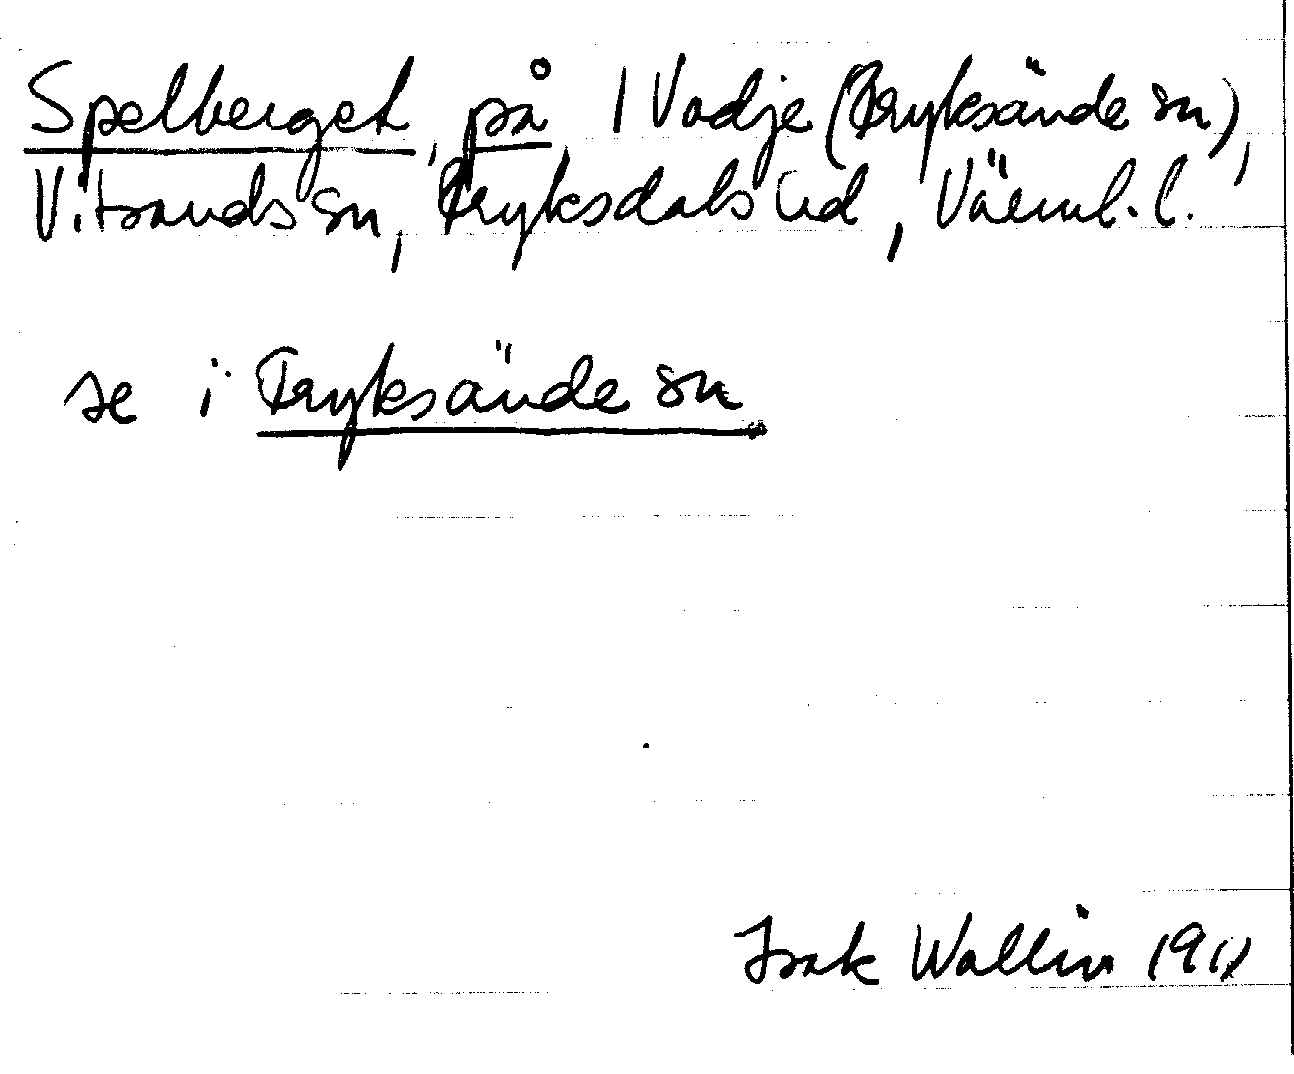 Spelberget, på, 1 Vadje (Fryksände sn),
Vitsands sn, Fryksdals hd, Värml. l.
se i Fryksände sn
Isak Wallin 1911